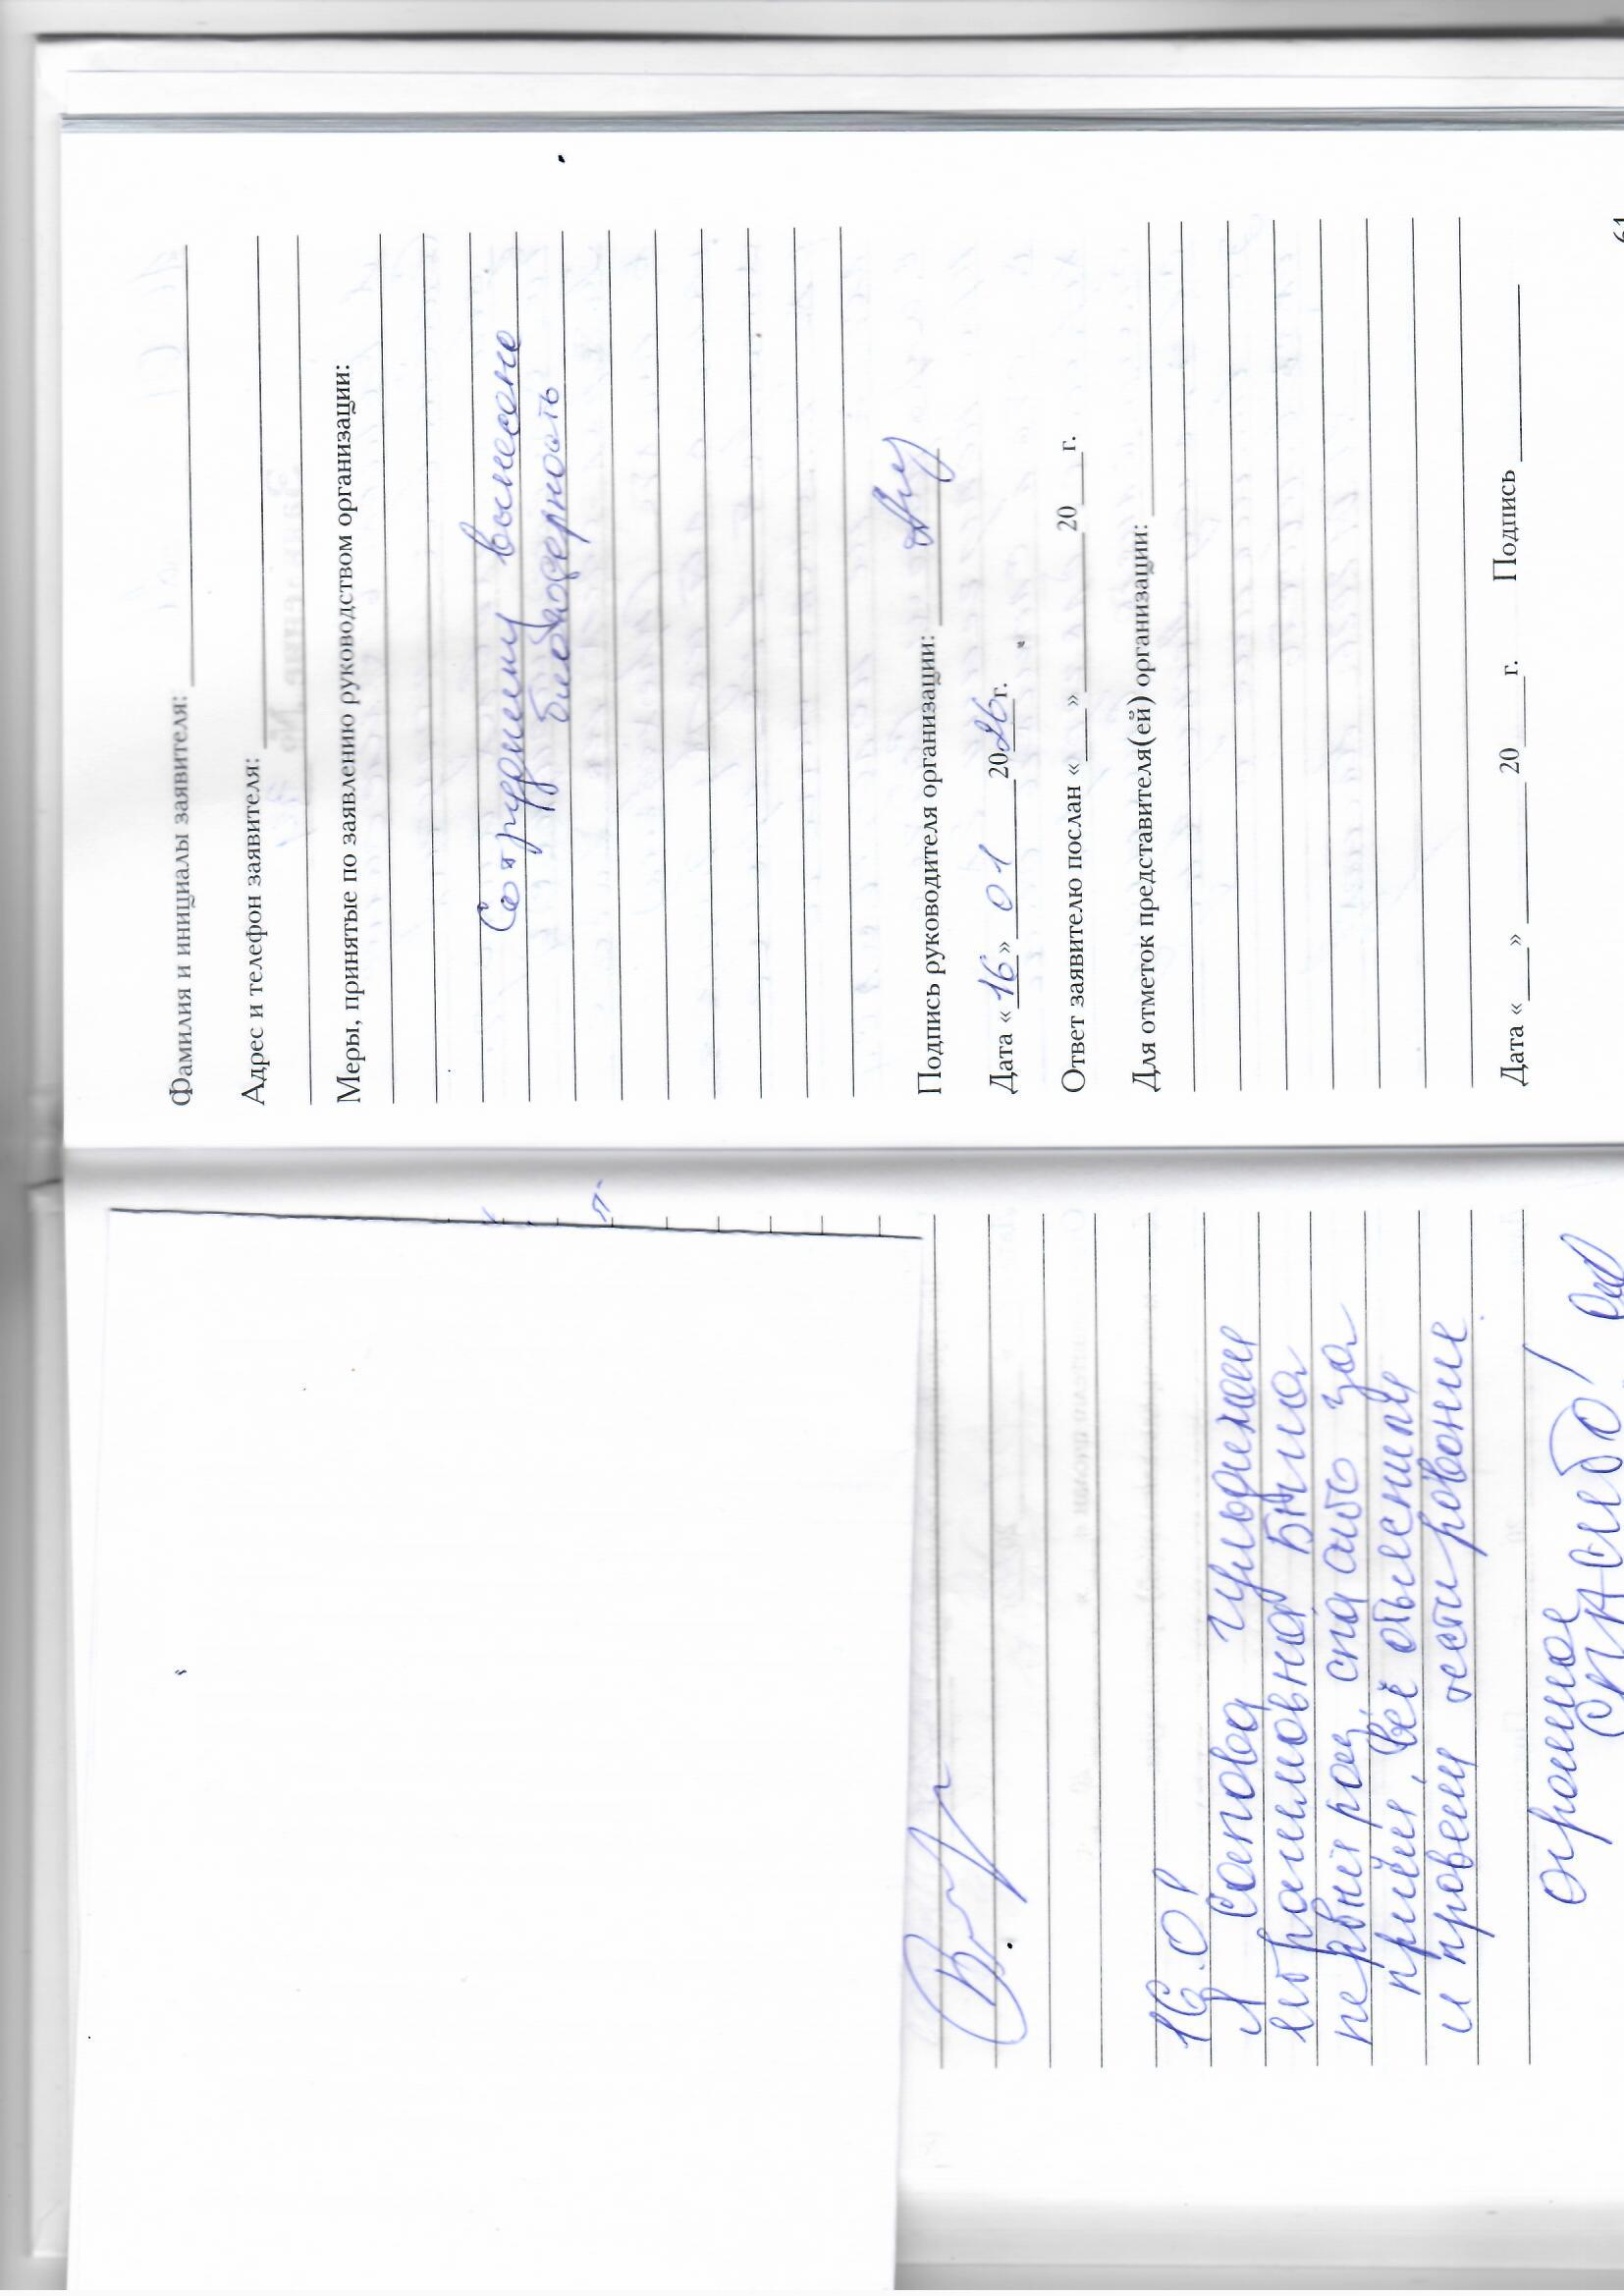 16.01
Я Сапова Гульфихан
Ибрагимовна была
первый раз, спасибо за
приём, всё объяснили
и провели тестирование
огромное
СПАСИБО!
Фамилия и инициалы заявителя:
Адрес и телефон заявителя:
Меры, принятые по заявлению руководством организации:
Сотруднику вынесено
благодарность
Подпись руководителя организации:
Дата «16» 01 2026 г.
Ответ заявителю послан «    »    20    г.
Для отметок представителя(ей) организации:
Дата «    »    20    г.    Подпись
61